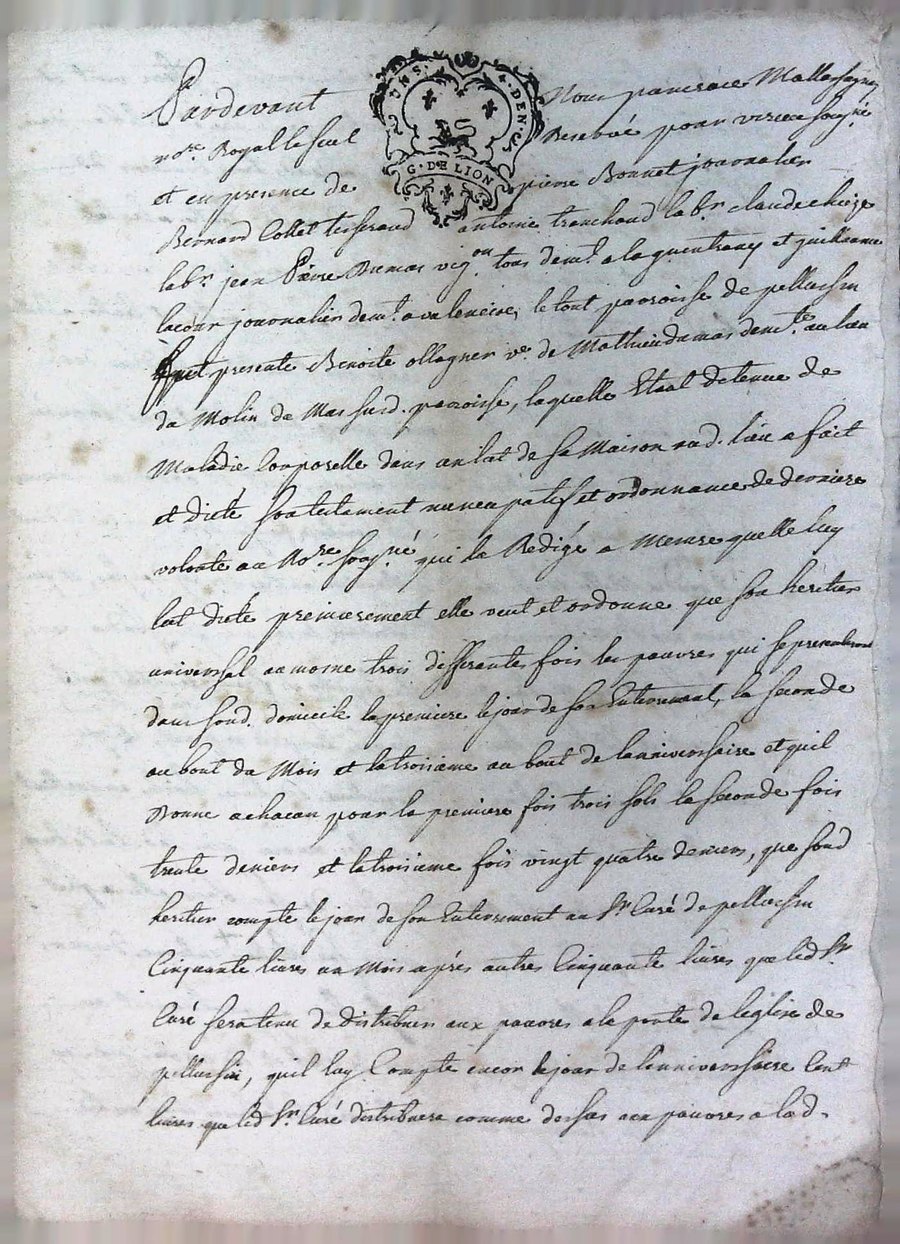 Pardevant Nous pancrace Mallassagny
no.re Royal le seul Reservé pour vicine sousg.né
et en presence de pierre Bonnet journalier
Bernard Collet tisserand antoine tranchand lab.r claude chieze
lab.r jean Pierre Dumas vig.on tous dem.t a la guentrany et guillaume
lacour journalier dem.t a valencire, le tout parroisse de pellussin
fut presente Benoite ollagner v.e de Mathieu dumas dem.te au lieu
du Molin de Mas susd. parroisse, laquelle Etant detenue de
Maladie Corporelle dans un lit de sa Maison aud. lieu a fait
et dicté son testament nuncupatif et ordonnance de derniere
volonte au No.re sousg.né qui la Redigé a Mesure quelle luy
lat dicte premierement elle veut et ordonne que son heritier
universel aumone trois differantes fois les pauvres qui se presenteront
dans sond. domicile la premiere le jour de son Enterrement, la seconde
au bout du Mois et la troisieme au bout de lanniversaire et quil
Donne a chacun pour la premiere fois trois sols la seconde fois
trente deniers et la troisieme fois vingt quatre deniers, que sond
heritier compte le jour de son Enterrement au S.r Curé de pellussin
Cinquante livres un Mois après autres Cinquante livres que led S.r
Curé sera tenu de distribuer aux pauvres a la porte de leglise de
pellussin, quil luy Compte encor le jour de lanniversaire Cent
livres que led S.r Curé distribuera comme dessus aux pauvres a lad.
G. DE LION
4. DEN.